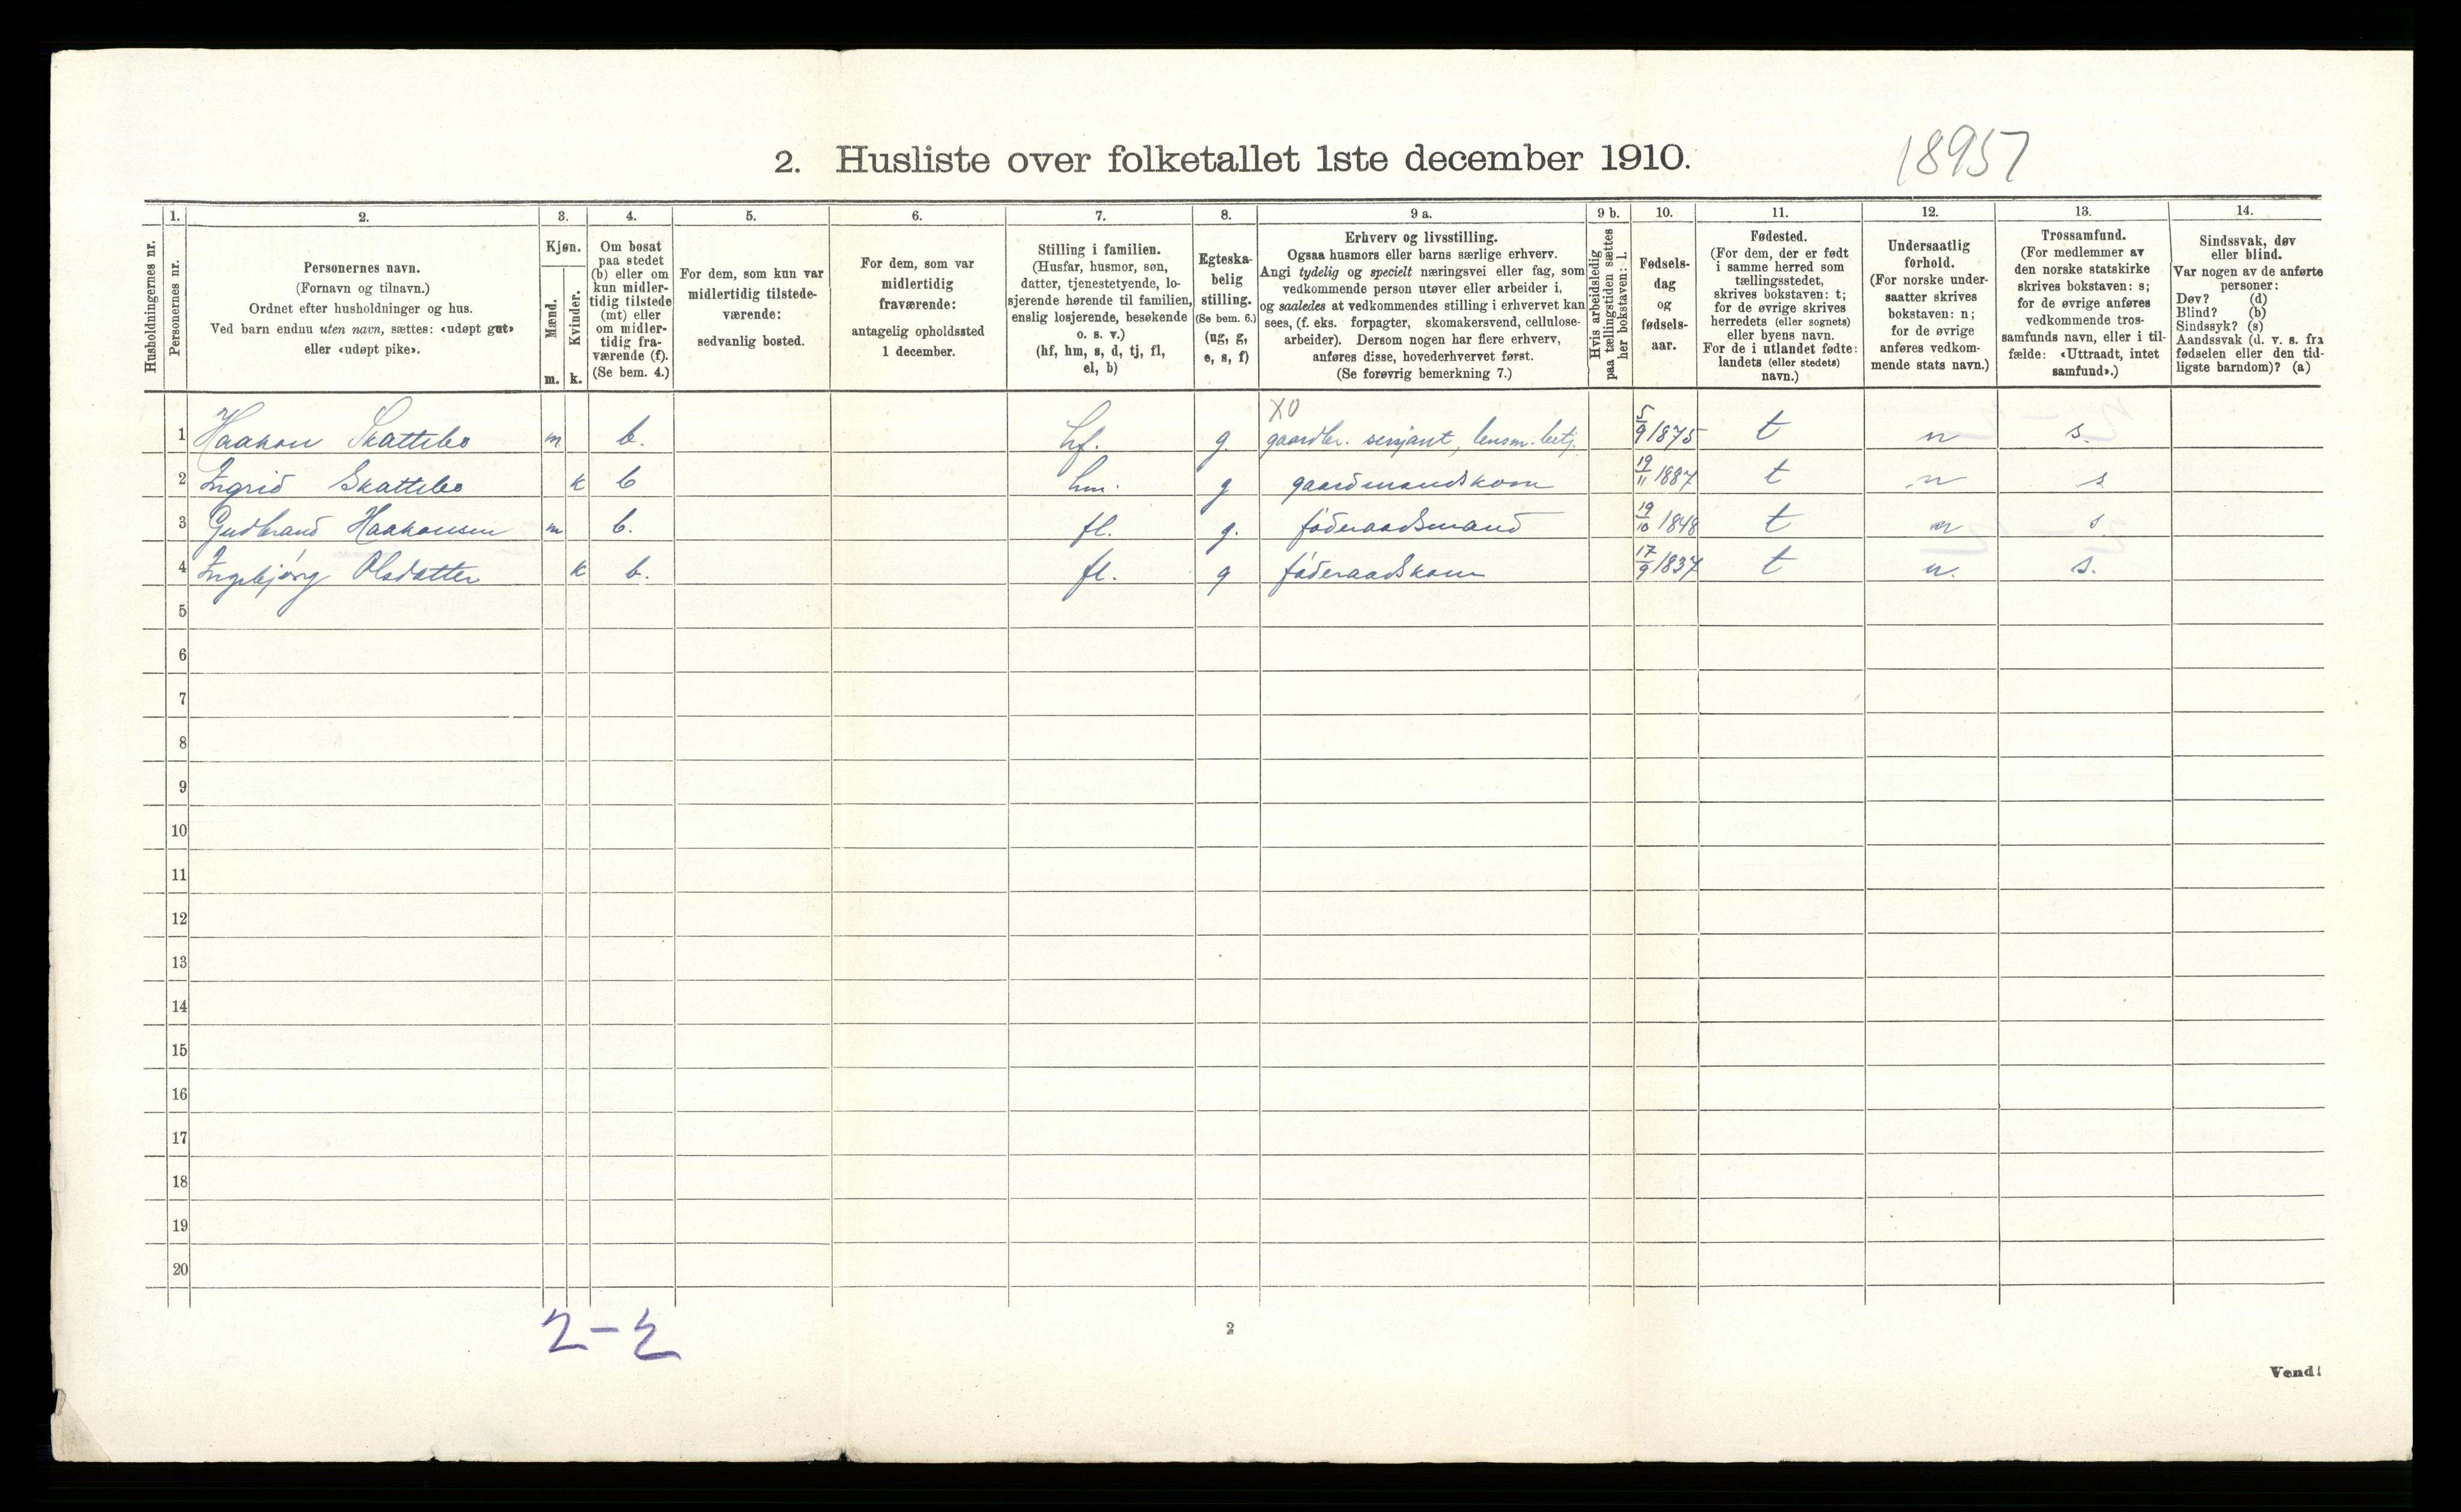 2. Husliste over folketallet 1ste december 1910.
18957
Husholdningernes nr.
1.
Personernes nr.
2.
Personernes navn.
(Fornavn og tilnavn.)
Ordnet efter husholdninger og hus.
Ved barn endnu uten navn, sættes: «udøpt gut»
eller «udøpt pike».
3.
Kjøn.
Mænd.
m.
Kvinder.
k.
4.
Om bosat
paa stedet
(b) eller om
kun midler-
tidig tilstede
(mt) eller
om midler-
tidig fra-
værende (f).
(Se bem. 4.)
5.
For dem, som kun var
midlertidig tilstede-
værende:
sedvanlig bosted.
6.
For dem, som var
midlertidig
fraværende:
antagelig opholdssted
1 december.
7.
Stilling i familien.
(Husfar, husmor, søn,
datter, tjenestetyende, lo-
sjerende hørende til familien,
enslig losjerende, besøkende
o. s. v.)
(hf, hm, s, d, tj, fl,
el, b)
8.
Egteska-
belig
stilling.
(Se bem. 6.)
(ug, g,
e, s, f)
9 a.
Erhverv og livsstilling.
Ogsaa husmors eller barns særlige erhverv.
Angi tydelig og specielt næringsvei eller fag, som
vedkommende person utøver eller arbeider i,
og saaledes at vedkommendes stilling i erhvervet kan
sees, (f. eks. forpagter, skomakersvend, cellulose-
arbeider). Dersom nogen har flere erhverv,
anføres disse, hovederhvervet først.
(Se forøvrig bemerkning 7.)
9 b.
Hvis arbeidsledig
paa tællingstiden sættes
her bokstaven: l.
10.
Fødsels-
dag
og
fødsels-
aar.
11.
Fødested.
(For dem, der er født
i samme herred som
tællingsstedet,
skrives bokstaven: t;
for de øvrige skrives
herredets (eller sognets)
eller byens navn.
For de i utlandet fødte:
landets (eller stedets)
navn.)
12.
Undersaatlig
forhold.
(For norske under-
saatter skrives
bokstaven: n;
for de øvrige
anføres vedkom-
mende stats navn.)
13.
Trossamfund.
(For medlemmer av
den norske statskirke
skrives bokstaven: s;
for de øvrige anføres
vedkommende tros-
samfunds navn, eller i til-
fælde: «Uttraadt, intet
samfund».)
14.
Sindssvak, døv
eller blind.
Var nogen av de anførte
personer:
Døv? (d)
Blind? (b)
Sindssyk? (s)
Aandssvak (d. v. s. fra
fødselen eller den tid-
ligste barndom)? (a)
X0
1 Haakon Skattebo m b. hf. g. gaardbr. sersjant, lensm. betj. 5/9 1875 t n s.
2 Ingrid Skattebo k b hm. g gaardmandskone 19/11 1887 t n s
3 Gudbrand Haakonsen m b. fl. g. föderaadsmand 19/10 1848 t n s.
4 Ingebjörg Olsdatter k b. fl. g föderaadskone 17/9 1837 t n. s.
5
6
7
8
9
10
11
12
13
14
15
16
17
18
19
20
2 - 2
2
Vend!